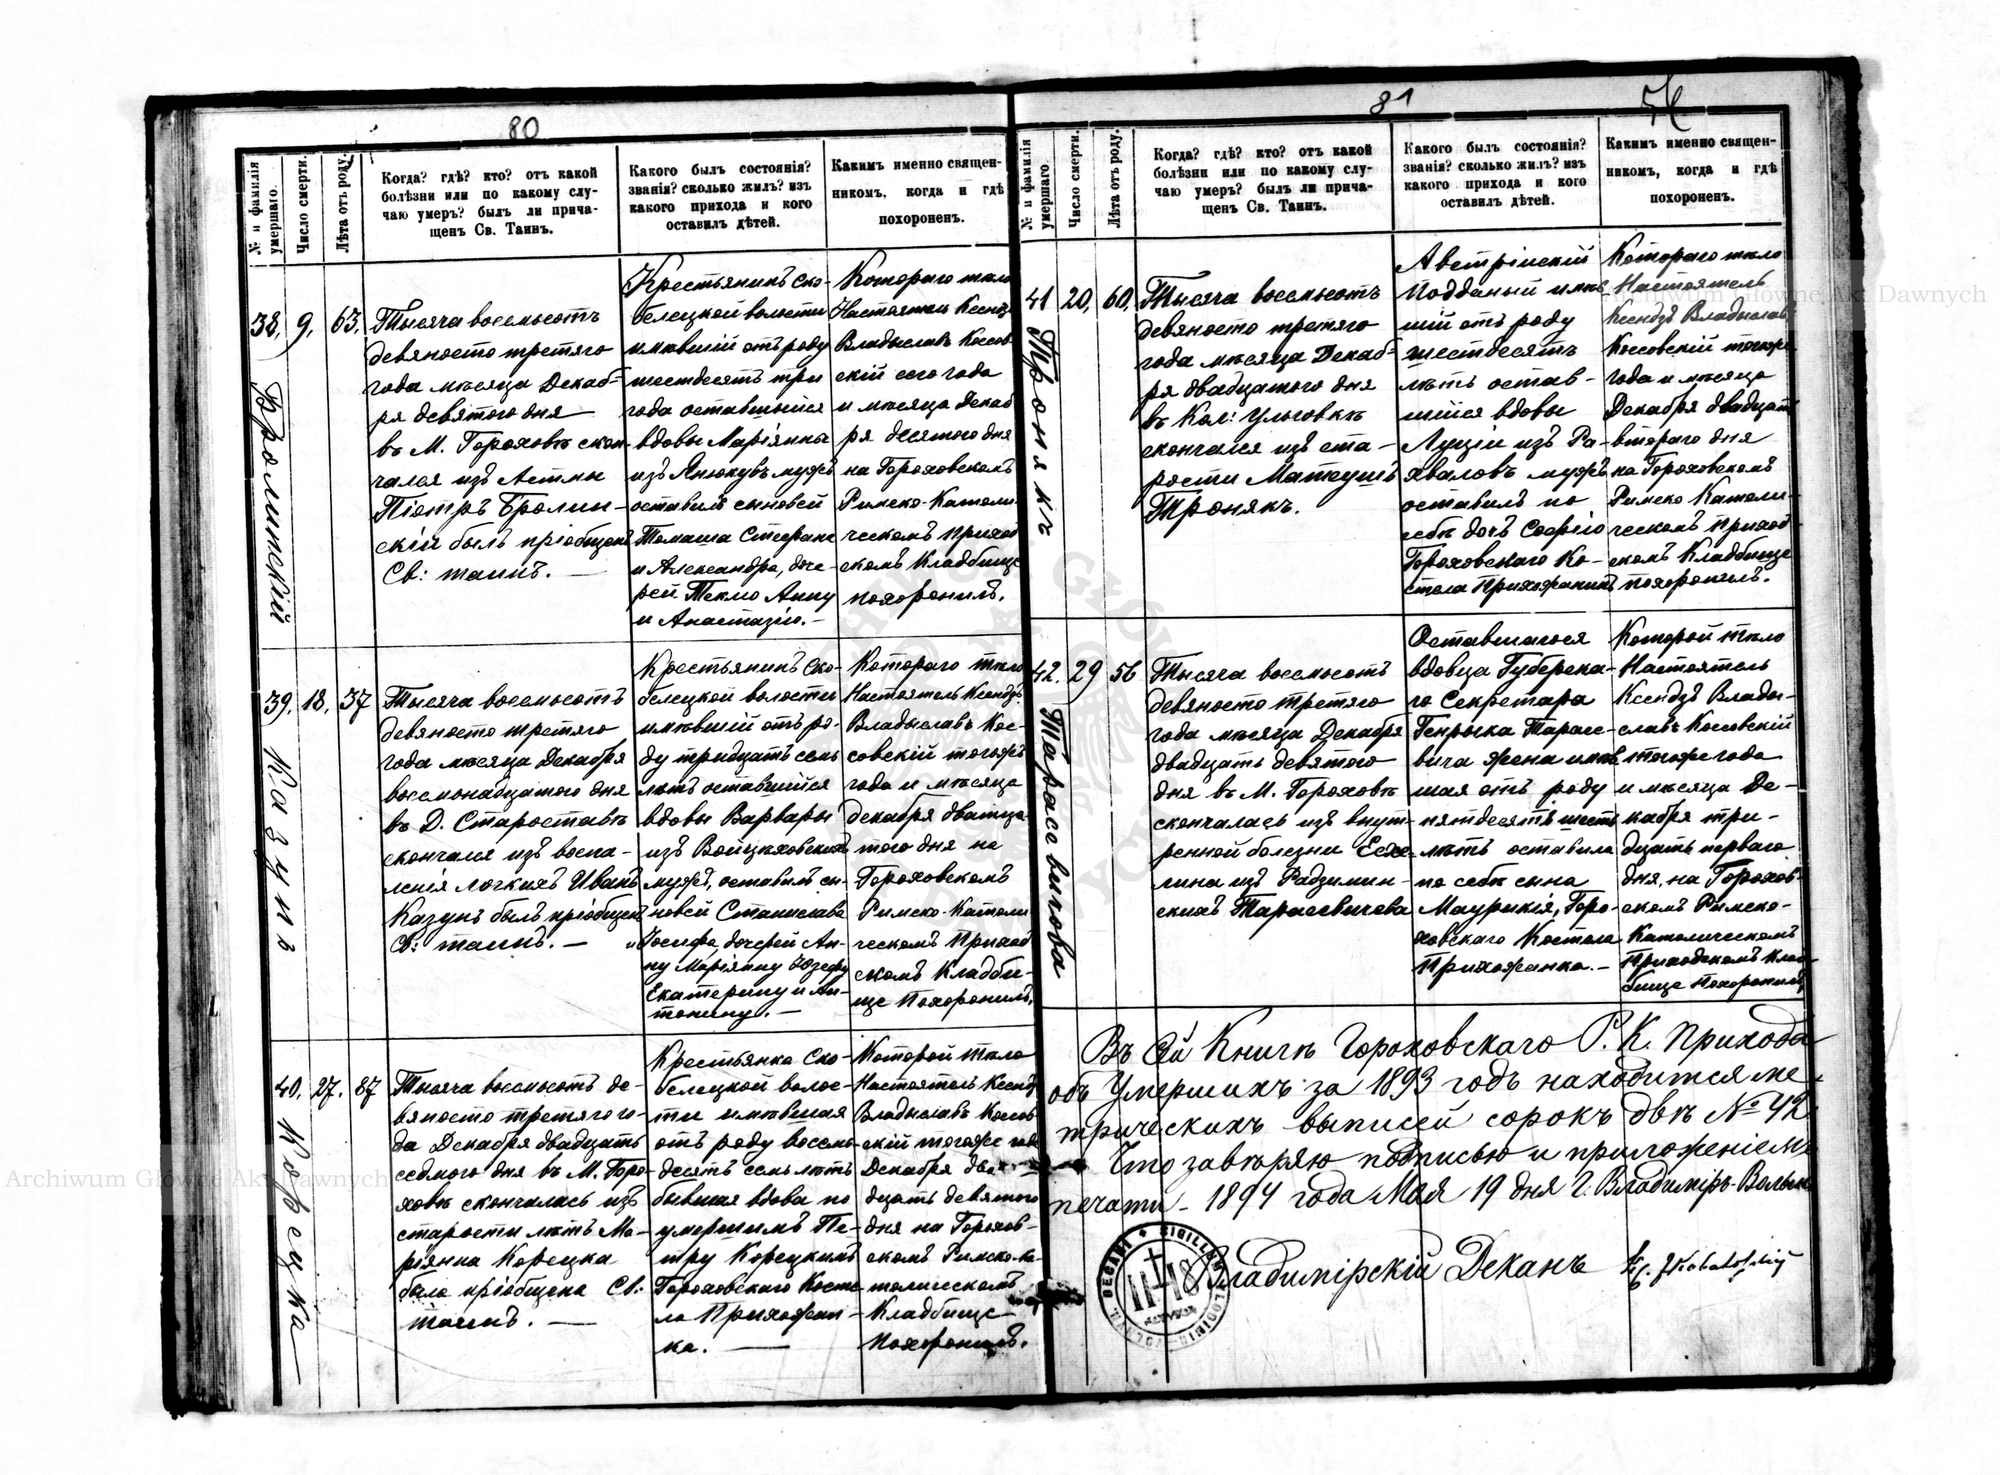 80
№ и фамилія умершаго.
Число смерти.
Лѣта отъ роду.
Когда? гдѣ? кто? отъ какой
болѣзни или по какому слу-
чаю умеръ? былъ ли прича-
щенъ Св. Таинъ.
Какого былъ состоянія?
званія? сколько жилъ? изъ
какого прихода и кого
оставилъ дѣтей.
Каким​ъ именно священ-
никомъ, когда и гдѣ
похороненъ.
38.
Бролинскій
9.
63.
Тысяча восемьсотъ
девяносто третяго
года мѣсяца Декаб-
ря девятого дня —
въ М. Гороховѣ скон-
чался изъ Астмы
Піотръ Бролин-
скій былъ пріобщенъ
Св: таинъ. —
Крестьянинъ Ско-
белецкой волости
имѣвшій отъ роду
шестдесятъ три
года оставшыйся
вдовы Маріянны
изъ Янюкувъ мужъ
оставилъ сыновей
Томаша Стефана
и Александра, доче-
рей Теклю Анну
и Анастазію. —
Котораго тѣло
Настоятель Ксендзъ
Владыславъ Коссов-
скій сего года
и мѣсяца Декаб
ря десятого дня
на Гороховскомъ
Римско-Католи-
ческомъ приход
скомъ Кладбище
похоронилъ.
39.
Казунъ
18.
37
Тысяча восемьсотъ
девяносто третяго
года мѣсяца Декабря
восемонадцатого дня
въ Д. Староставѣ
скончался изъ воспа-
ленія логкихъ Иванъ
Казунъ былъ пріобщен
Св: таинъ. —
Крестьянинъ Ско-
белецкой волости
имѣвшій отъ ро-
ду тридцать семь
лѣтъ оставшийся
вдовы Варвары
изъ Войцѣховскихъ
мужъ, оставилъ сы-
новей Станислава
и Іосифа, дочерей Ан-
ну Маріянну Юзефу
Екатерину и Ан-
тонину. —
Котораго тѣло
Настоятель Ксендзъ
Владыславъ Кос-
совскій тогожъ
года и мѣсяца
декабря дватца-
того дня на
Гороховскомъ
Римско-Католи
ческомъ Приход
скомъ Кладби-
ще Похоронилъ.
40.
Корецка
27.
87
Тысяча восемьсотъ де-
вяносто третяго го-
да Декабря двадцать
седмого дня въ М. Горо-
ховѣ скончалась изъ
старости лѣтъ Ма-
ріянна Корецка
была пріобщена Св:
таинъ. —
Крестьянка Ско-
белецкой волос-
ти имѣвшая
отъ роду восемь-
десятъ семь лѣтъ
бывшая вдова по
умершимъ Пе-
тру Корецкимъ
Гороховскаго Косте
ла Прихожан-
ка. —
Которой тѣло
Настоятель Ксендз
Владыславъ Коссов
скій тогоже года
Декабря два-
дцать девятого
дня на Горохов-
скомъ Римско-Ка-
толическомъ
Кладбище
Похоронилъ.
81
№ и фамилія умершаго.
Число смерти.
Лѣта отъ роду.
Когда? гдѣ? кто? отъ какой
болѣзни или по какому слу-
чаю умеръ? былъ ли прича-
щенъ Св. Таинъ.
Какого былъ состоянія?
званія? сколько жилъ? изъ
какого прихода и кого
оставилъ дѣтей.
Какимъ именно священ-
никомъ, когда и гдѣ
похороненъ.
41
Тронякъ
20.
60.
Тысяча восемьсотъ
девяносто третяго
года мѣсяца Декаб-
ря двадцатого дня
въ Кол: Ульговкѣ
скончался изъ ста-
рости Матеушъ
Тронякъ.
Австрійскій
Подданый имѣв
шій отъ роду
шестдесятъ
лѣтъ остав-
шійся вдовы
Луціи изъ Ра-
хваловъ мужъ
оставилъ по
себѣ дочъ Софію
Гороховскаго Ко-
стела Прихожанинъ
Котораго тѣло
Настоятель
Ксендзъ Владыслав
Коссовскій тогоже
года и мѣсяца
Декабря двадцат
втораго дня
на Гороховскомъ
Римско Католи-
ческомъ приход-
скомъ Кладбище
похоронилъ.
42.
Тарасевичова
29
56
Тысяча восемьсотъ
девяносто третяго
года мѣсяца Декабря
двадцать девятого
дня въ М. Гороховѣ
скончалась изъ внут-
ренной болезни
лина изъ Радзимин-
скихъ Тарасевичева
Оставшагося
вдовца Губерска-
го Секретара
Генрыка Тарасе-
вича жена имѣв
шая отъ роду
пятдесятъ шесть
лѣтъ оставила
по себѣ сына
Маурикія, Горо-
ховскаго Костела
Прихожанка. —
Которой тѣло
Настоятель
Ксендзъ Влады-
славъ Косовскій
тогоже года
и мѣсяца Де-
кабря три-
дцать перваго
дня, на Горохов-
скомъ Римско-
Католическомъ
Приходскомъ Клад
бище Похоронилъ
Въ Сій Книгѣ Гороховскаго Р. К. Прихода
объ Умершихъ за 1893 годъ находится ме-
трическихъ выписей сорокъ двѣ № 42.
Что завѣряю подписью и приложеніемъ
печати - 1894 года Мая 19 дня Г. Владиміръ-Волын
Владимірскій Деканъ
DECANI + SIGILLUM
Archiwum Główne Akt Dawnych
Archiwum Główne Akt Dawnych